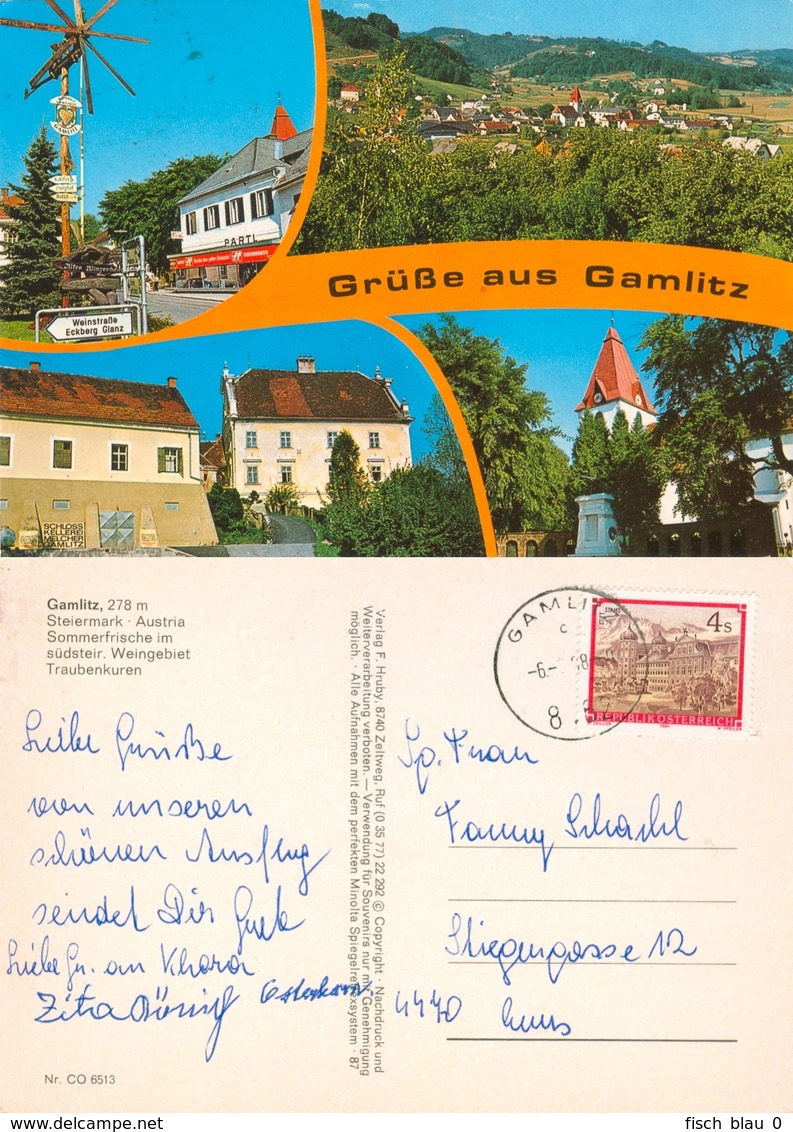 GAMLITZ
PARTI
Weinstraße
Eckberg Glanz
Grüße aus Gamlitz
SCHLOSS
KELLEREI
MELCHER
GAMLITZ
Gamlitz, 278 m
Steiermark · Austria
Sommerfrische im
südsteir. Weingebiet
Traubenkuren
Liebe Grüße
von unseren
schönen Ausflug
sendet Dir
Liebe Gr. an
Zita
Nr. CO 6513
Verlag F. Hruby, 8740 Zeltweg, Ruf (0 35 77) 22 292 © Copyright · Nachdruck und
Weiterverarbeitung verboten. — Verwendung für Souvenirs nur mit Genehmigung
möglich. · Alle Aufnahmen mit dem perfekten Minolta Spiegelreflexsystem · 87
GAMLI
c
-6.-
STIFT STAMS
4s
REPUBLIK ÖSTERREICH
1984
Sp. Frau
Fanny Schachl
Stiegengasse 12
4470 Enns
fisch_blau_0